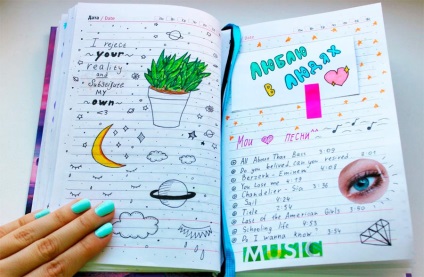 Дата / Date
I reject
~ your ~
reality
and
substitute
my
own
<3
ЛЮБЛЮ
В
ЛЮДЯХ
Мои песни^^
All About That Bass 3:09
Do you belived can you recived
Berzerk - Eminem 4:03
You Lose me 4:19
Chandelier - Sia 3:36
Sail 4:24
Title 2:54
Last of the American Girls 3:40
Schooling life 4:53
Do I wanna know 3:
MUSIC